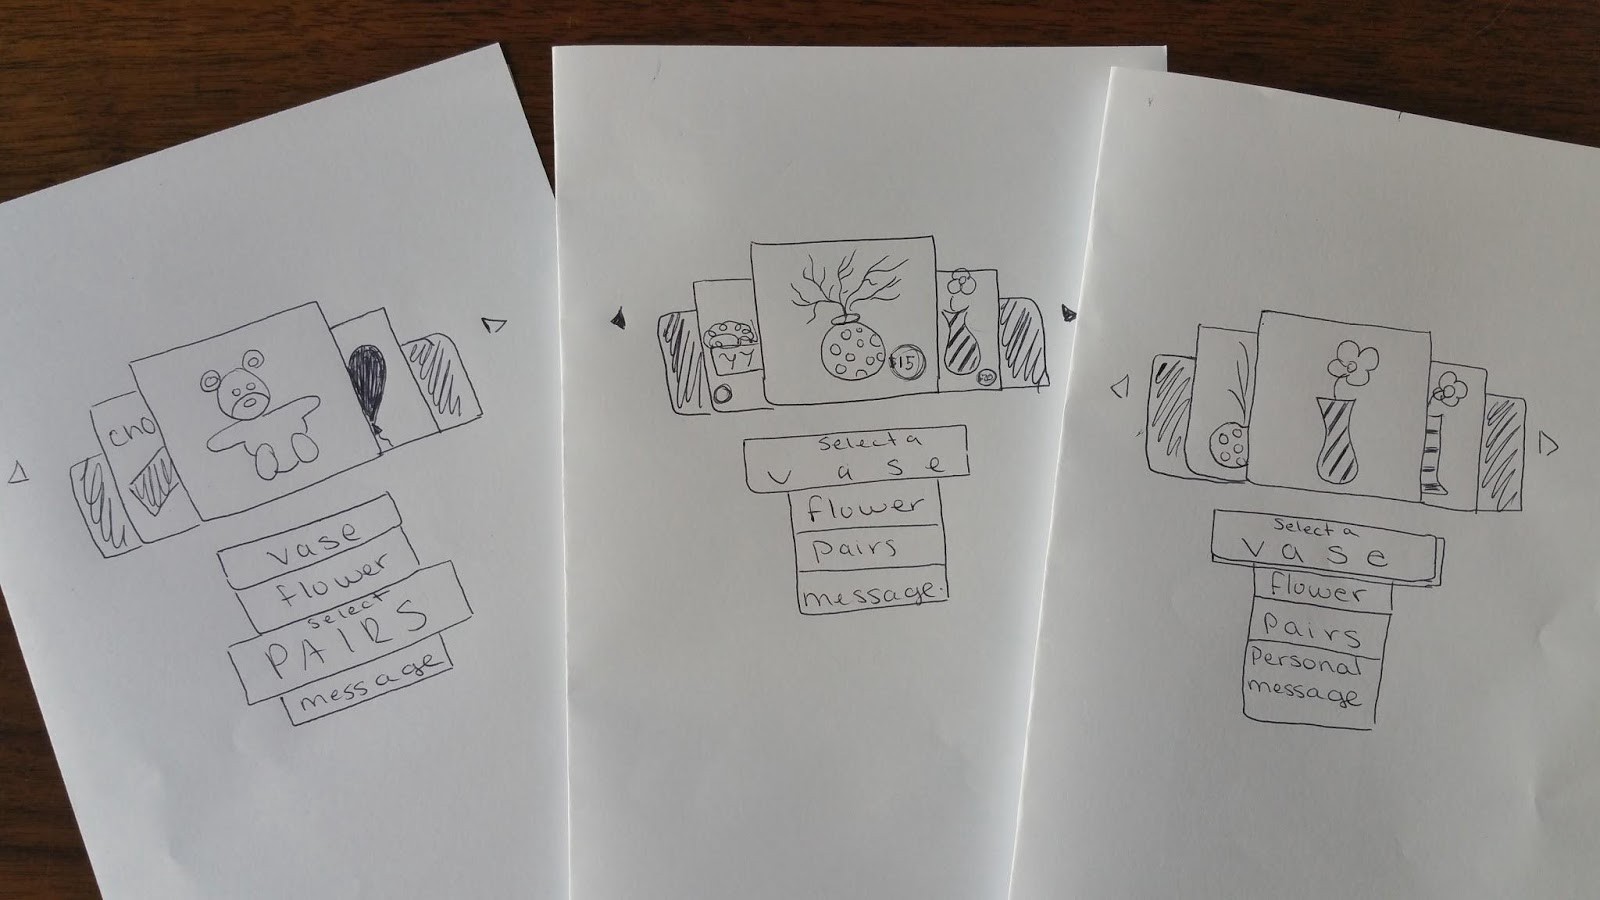 cho
vase
flower
select
PAIRS
message
$15
Select a
vase
flower
Pairs
message.
Select a
vase
flower
Pairs
Personal
message